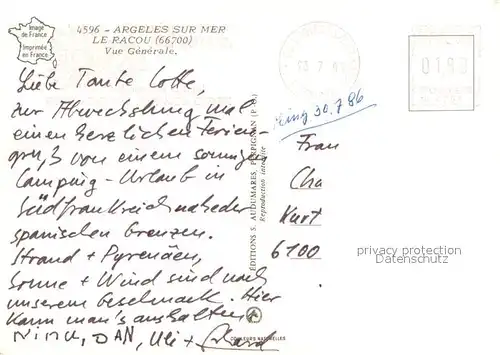 Image
de France
Imprimée
en France
4596 - ARGELES SUR MER
LE RACOU (66700)
Vue Générale.
Liebe Tante Lotte,
zur Abwechslung mal
einen herzlichen Ferien-
gruß von einem sonnigen
Camping-Urlaub in
Südfrankreich nahe der
spanischen Grenzen.
Strand + Pyrenäen,
Sonne + Wind sind nach
unserem Geschmack. Hier
kann man's aushalten!
DAN, Uli +
EDITIONS S. AUDUMARES, PERPIGNAN (P.-O.)
Reproduction interdite
COULEURS NATURELLES
0180
30.7.86
Frau
Cha
Kurt
6100
privacy protection
Datenschutz